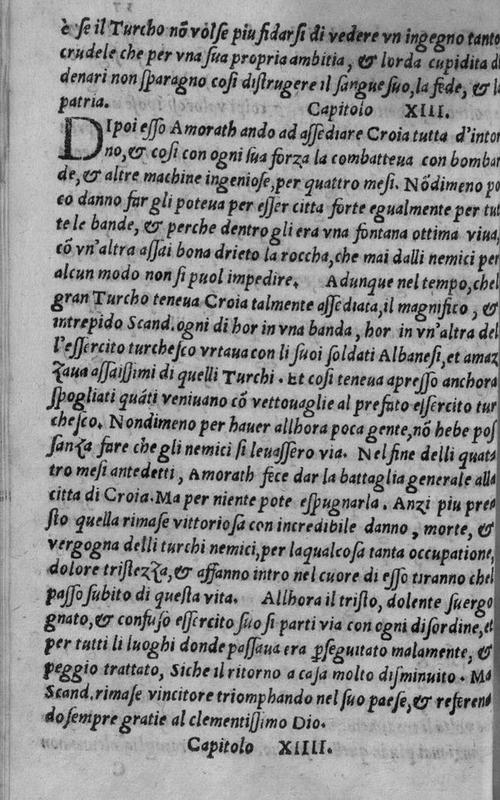 è se il Turcho nõ volse piu fidarsi di vedere vn ingegno tanto
crudele che per vna sua propria ambitia, & lorda cupidita di
denari non sparagno cosi distrugere il sangue suo, la fede, & la
patria.
Capitolo XIII.
DIpoi esso Amorath ando ad assediare Croia tutta d'intor
no, & cosi con ogni sua forza la combatteua con bombar
de, & altre machine ingeniose, per quattro mesi. Nõdimeno po
co danno far gli poteua per esser citta forte egualmente per tut
te le bande, & perche dentro gli era vna fontana ottima viua,
cõ vn'altra assai bona drieto la roccha, che mai dalli nemici per
alcun modo non si puol impedire. Adunque nel tempo, chel
gran Turcho teneua Croia talmente assediata, il magnifico, &
intrepido Scand. ogni di hor in vna banda, hor in vn'altra del
l'essercito turchesco vrtaua con li suoi soldati Albanesi, et amaz
zaua assaissimi di quelli Turchi. Et cosi teneua apresso anchora
spogliati quãti veniuano cõ vettouaglie al prefato essercito tur
chesco. Nondimeno per hauer allhora poca gente, nõ hebe pos
sanza fare che gli nemici si leuassero via. Nel fine delli quat
tro mesi antedetti, Amorath fece dar la battaglia generale alla
citta di Croia. Ma per niente pote espugnarla. Anzi piu pre
sto quella rimase vittoriosa con incredibile danno, morte, &
vergogna delli turchi nemici, per laqualcosa tanta occupatione,
dolore tristezza, & affanno intro nel cuore di esso tiranno chel
passo subito di questa vita. Allhora il tristo, dolente suergo
gnato, & confuso essercito suo si parti via con ogni disordine, et
per tutti li luoghi donde passaua era ꝑseguitato malamente, &
peggio trattato, Siche il ritorno a casa molto disminuito. Ma
Scand. rimase vincitore triomphando nel suo paese, & referen
do sempre gratie al clementissimo Dio.
Capitolo XIIII.